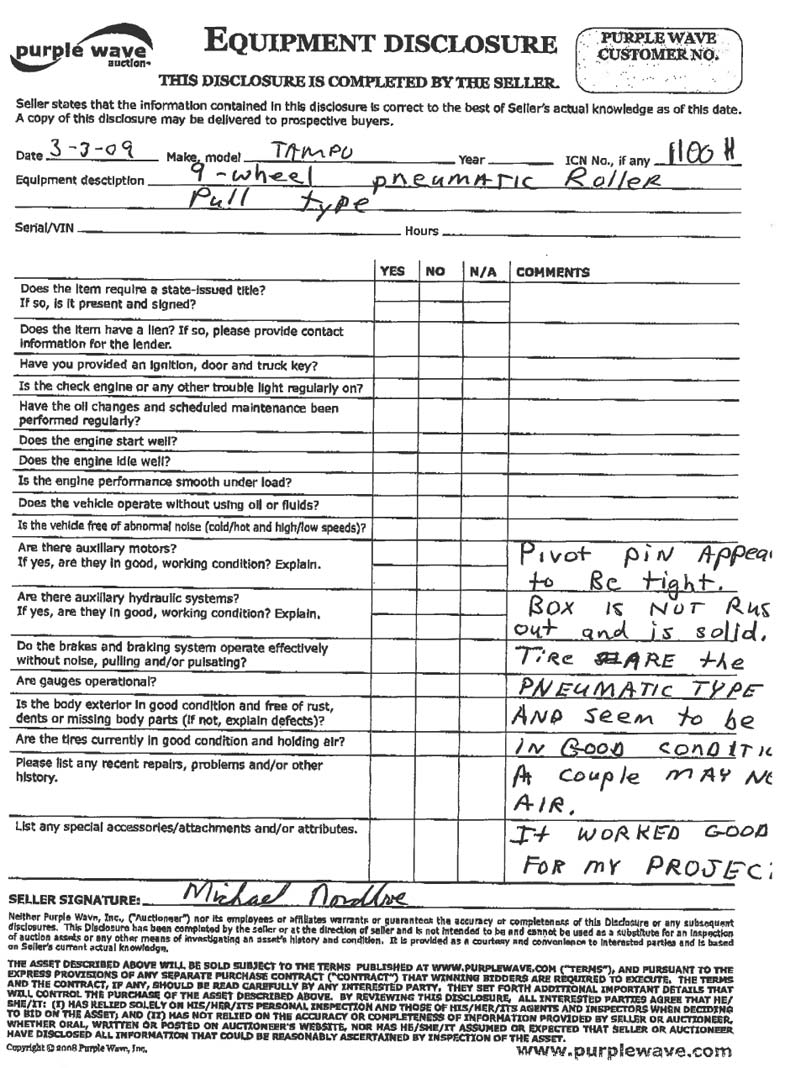 purple wave
auction
EQUIPMENT DISCLOSURE
PURPLE WAVE
CUSTOMER NO.
THIS DISCLOSURE IS COMPLETED BY THE SELLER.
Seller states that the information contained in this disclosure is correct to the best of Seller's actual knowledge as of this date.
A copy of this disclosure may be delivered to prospective buyers.
Date 3-3-09 Make, model TAMPO Year ICN No., if any 1100 H
Equipment desctiption 9-wheel pneumatic Roller
Pull type
Serial/VIN Hours
YES NO N/A COMMENTS
Does the item require a state-issued title?
If so, is it present and signed?
Does the item have a lien? If so, please provide contact
information for the lender.
Have you provided an ignition, door and truck key?
Is the check engine or any other trouble light regularly on?
Have the oil changes and scheduled maintenance been
performed regularly?
Does the engine start well?
Does the engine idle well?
Is the engine performance smooth under load?
Does the vehicle operate without using oil or fluids?
Is the vehicle free of abnormal noise (cold/hot and high/low speeds)?
Are there auxiliary motors?
If yes, are they in good, working condition? Explain.
Are there auxiliary hydraulic systems?
If yes, are they in good, working condition? Explain.
Do the brakes and braking system operate effectively
without noise, pulling and/or pulsating?
Are gauges operational?
Is the body exterior in good condition and free of rust,
dents or missing body parts (if not, explain defects)?
Are the tires currently in good condition and holding air?
Please list any recent repairs, problems and/or other
history.
List any special accessories/attachments and/or attributes.
Pivot pin Appea
to Be tight.
Box is NOT Rus
out and is solid.
Tire ARE the
PNEUMATIC TYPE
AND seem to be
IN GOOD CONDITIO
A couple MAY NE
AIR.
It WORKED GOOD
FOR my PROJEC
SELLER SIGNATURE: Michael
Neither Purple Wave, Inc., ("Auctioneer") nor its employees or affiliates warrants or guarantees the accuracy or completeness of this Disclosure or any subsequent
disclosures. This Disclosure has been completed by the seller or at the direction of seller and is not intended to be and cannot be used as a substitute for an inspection
of auction assets or any other means of investigating an asset's history and condition. It is provided as a courtesy and convenience to interested parties and is based
on Seller's current actual knowledge.
THE ASSET DESCRIBED ABOVE WILL BE SOLD SUBJECT TO THE TERMS PUBLISHED AT WWW.PURPLEWAVE.COM ("TERMS"), AND PURSUANT TO THE
EXPRESS PROVISIONS OF ANY SEPARATE PURCHASE CONTRACT ("CONTRACT") THAT WINNING BIDDERS ARE REQUIRED TO EXECUTE. THE TERMS
AND THE CONTRACT, IF ANY, SHOULD BE READ CAREFULLY BY ANY INTERESTED PARTY. THEY SET FORTH ADDITIONAL IMPORTANT DETAILS THAT
WILL CONTROL THE PURCHASE OF THE ASSET DESCRIBED ABOVE. BY REVIEWING THIS DISCLOSURE, ALL INTERESTED PARTIES AGREE THAT HE/
SHE/IT: (I) HAS RELIED SOLELY ON HIS/HER/ITS PERSONAL INSPECTION AND THOSE OF HIS/HER/ITS AGENTS AND INSPECTORS WHEN DECIDING
TO BID ON THE ASSET; AND (II) HAS NOT RELIED ON THE ACCURACY OR COMPLETENESS OF INFORMATION PROVIDED BY SELLER OR AUCTIONEER,
WHETHER ORAL, WRITTEN OR POSTED ON AUCTIONEER'S WEBSITE, NOR HAS HE/SHE/IT ASSUMED OR EXPECTED THAT SELLER OR AUCTIONEER
HAVE DISCLOSED ALL INFORMATION THAT COULD BE REASONABLY ASCERTAINED BY INSPECTION OF THE ASSET.
Copyright © 2008 Purple Wave, Inc.
www.purplewave.com